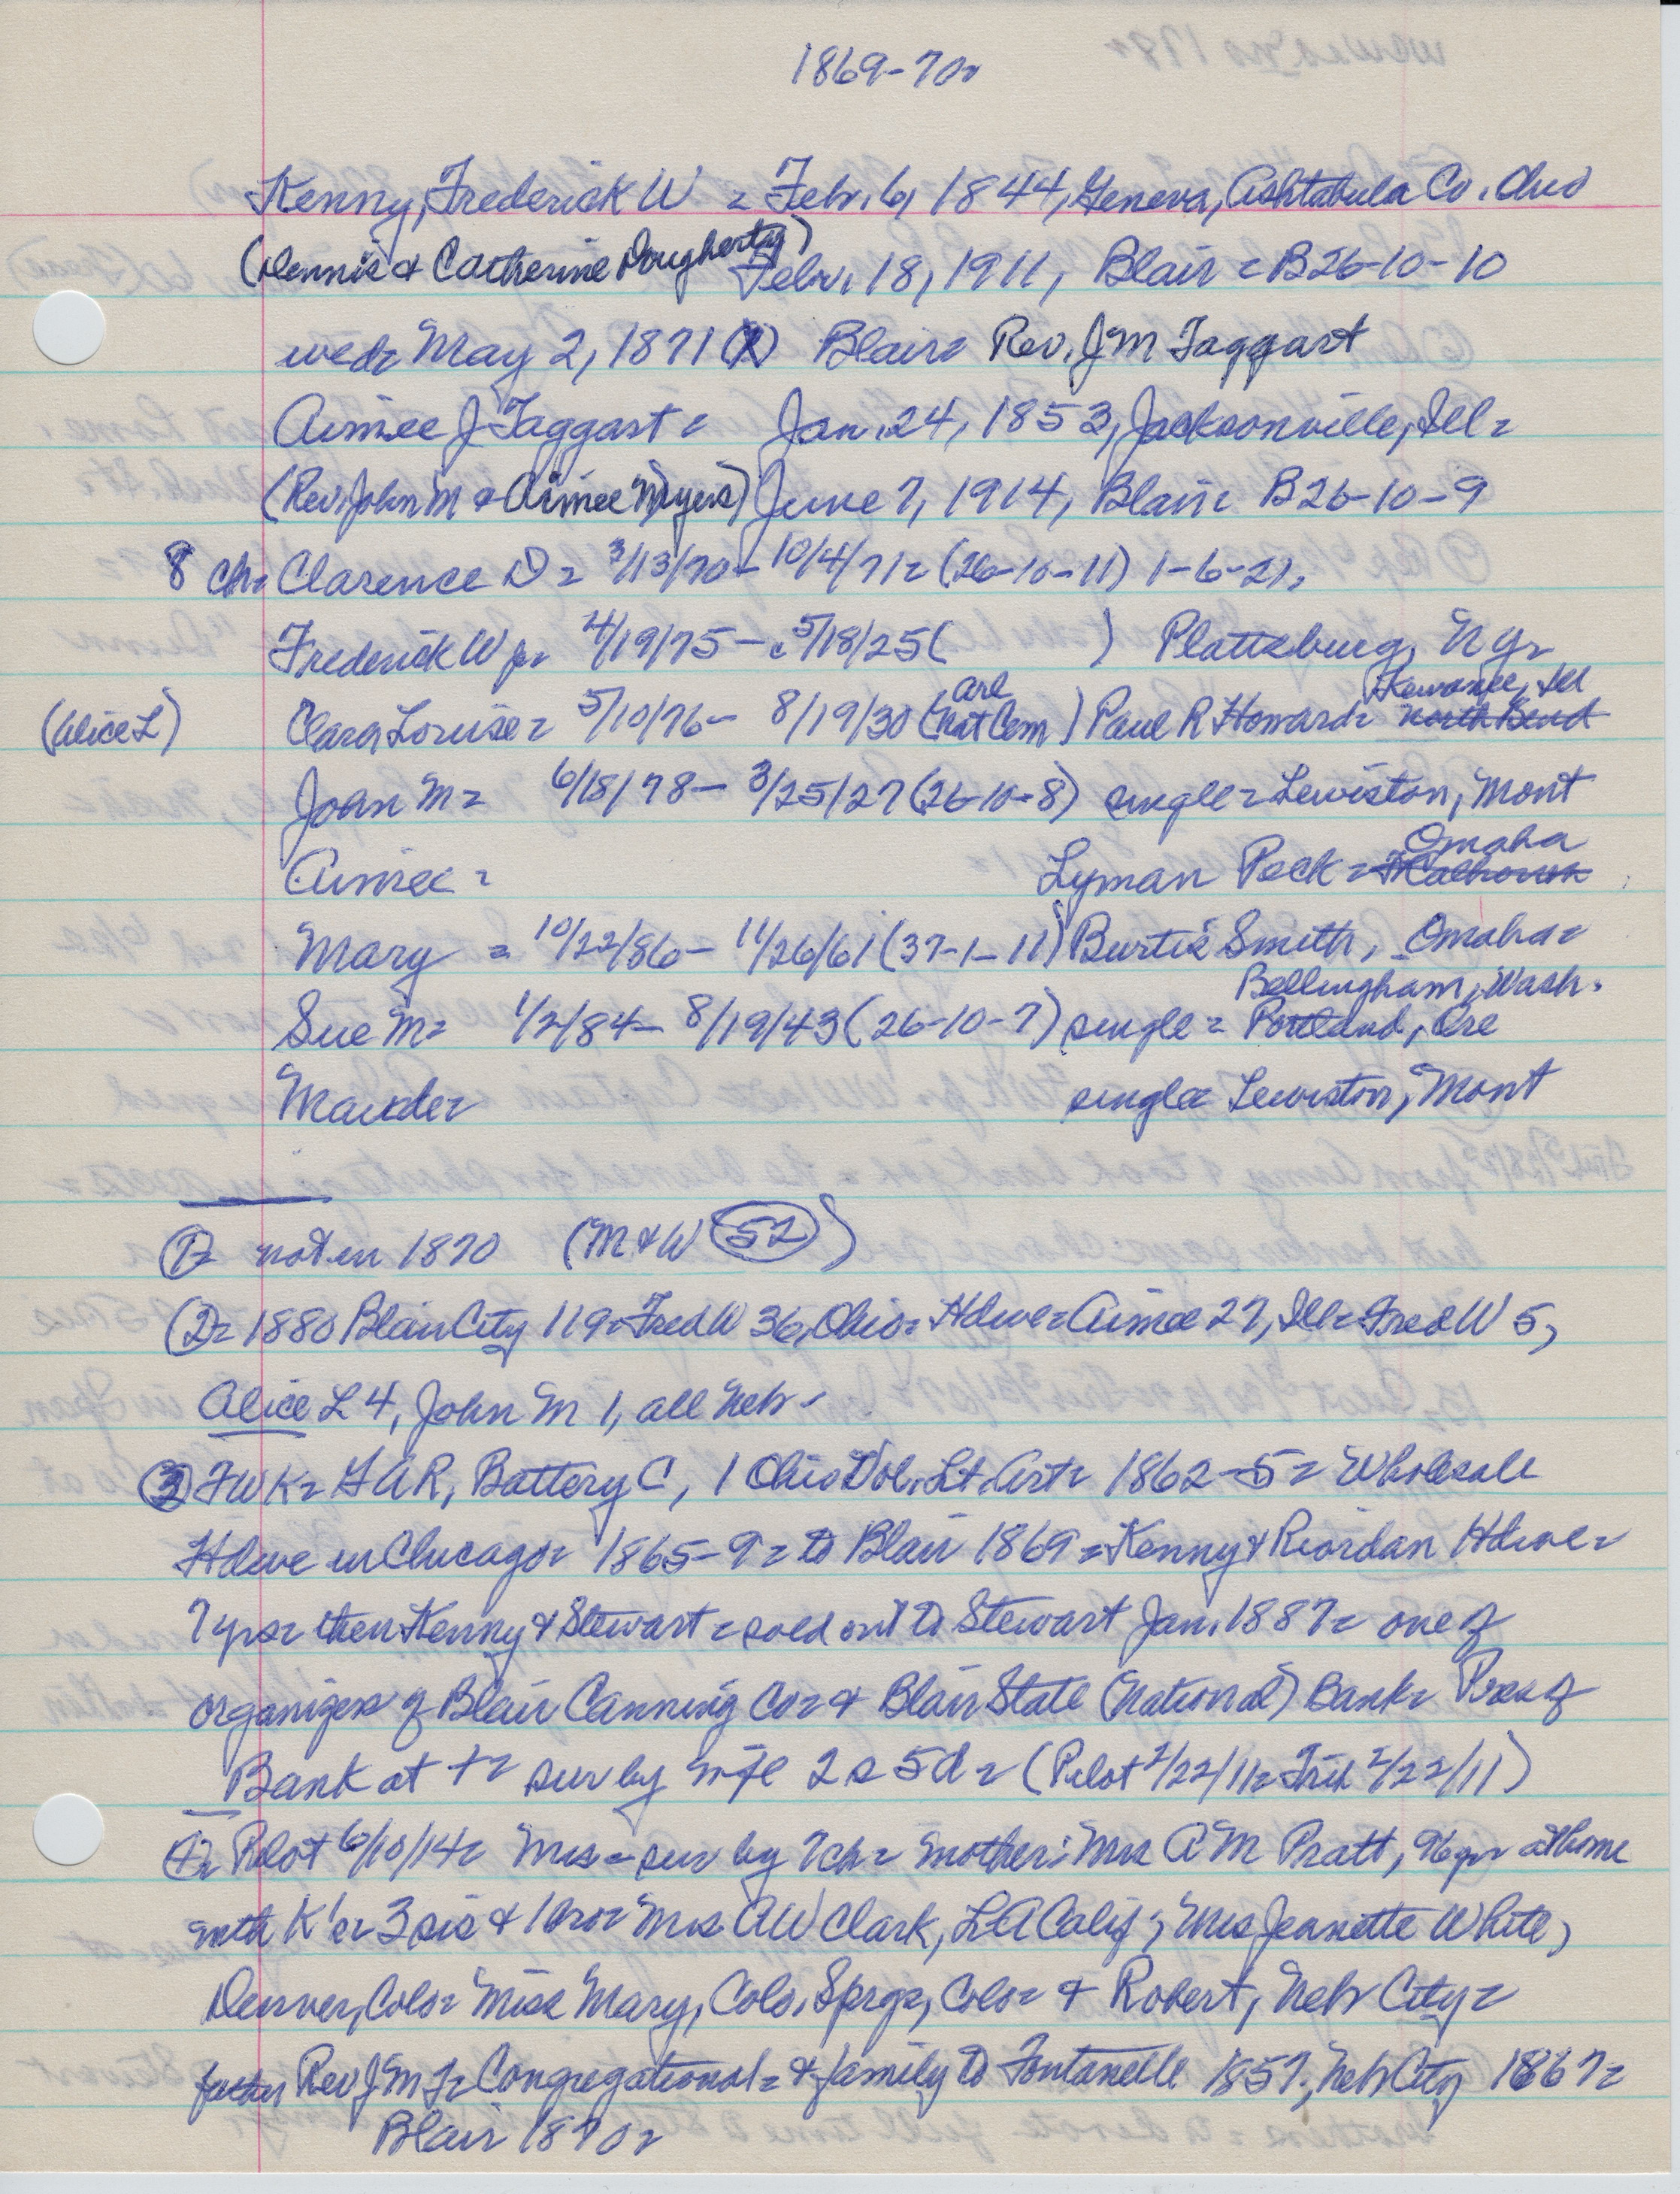 1869-70=
Kenny, Frederick W = Febr. 6, 1844, Geneva, Ashtabula Co. Ohio
(Dennis & Catherine Dougherty) Febr. 18, 1911, Blair = B26-10-10
wed= May 2, 1871 (X) Blair= Rev. J M Taggart
Aimee J Taggart = Jan. 24, 1853, Jacksonville, Ill=
(Rev. John M & Aimee Myers) June 7, 1914, Blair= B26-10-9
8 ch= Clarence D = 3/13/70- 10/4/71= (26-10-11) 1-6-21,
Frederick W jr= 4/19/75- 5/18/25 ( ) Plattsburg, N Y=
(Alice L) Clara Louise= 5/10/76- 8/19/30 (Arl Nat Cem) Paul R Howard= Kewanee, Ill North Bend
John M= 6/18/78- 3/25/27 (26-10-8) single = Lewiston, Mont
Aimee = Lyman Peck = Omaha Ft Calhoun
Mary = 10/22/86- 11/26/61 (37-1-11) Burtis Smith, Omaha=
Bellingham, Wash.
Sue M= 1/2/84- 8/19/43 (26-10-7) single = Portland, Ore
Maude= single= Lewiston, Mont
1= not in 1870 (M & W 52)
2= 1880 Blair City 119= Fred W 36, Ohio= Hdwe= Aimee 27, Ill= Fred W 5,
Alice L 4, John M 1, all Neb.
3 FWK= GAR, Battery C, 1 Ohio Vol. Lt. Art= 1862-5= Wholesale
Hdwe in Chicago= 1865-9= to Blair 1869= Kenny & Riordan Hdwe=
7 yrs= then Kenny & Stewart = sold out to Stewart Jan. 1887= one of
organizers of Blair Canning Co= & Blair State (National) Bank= Pres of
Bank at += sur by wife 2 s 5 d = (Pilot 2/22/11= Trib 2/22/11)
4= Pilot 6/10/14= Mrs = sur by 7 ch= mother: Mrs A M Pratt, 96 yr at home
with K's= 3 sis & 1 bro= Mrs AW Clark, LA Calif; Mrs Jeanette White,
Denver, Colo= Miss Mary, Colo. Sprgs, Colo= & Robert, Neb City=
father Rev J M T= Congregational= & family to Fontanelle 1857, Neb City 1867=
Blair 1870=